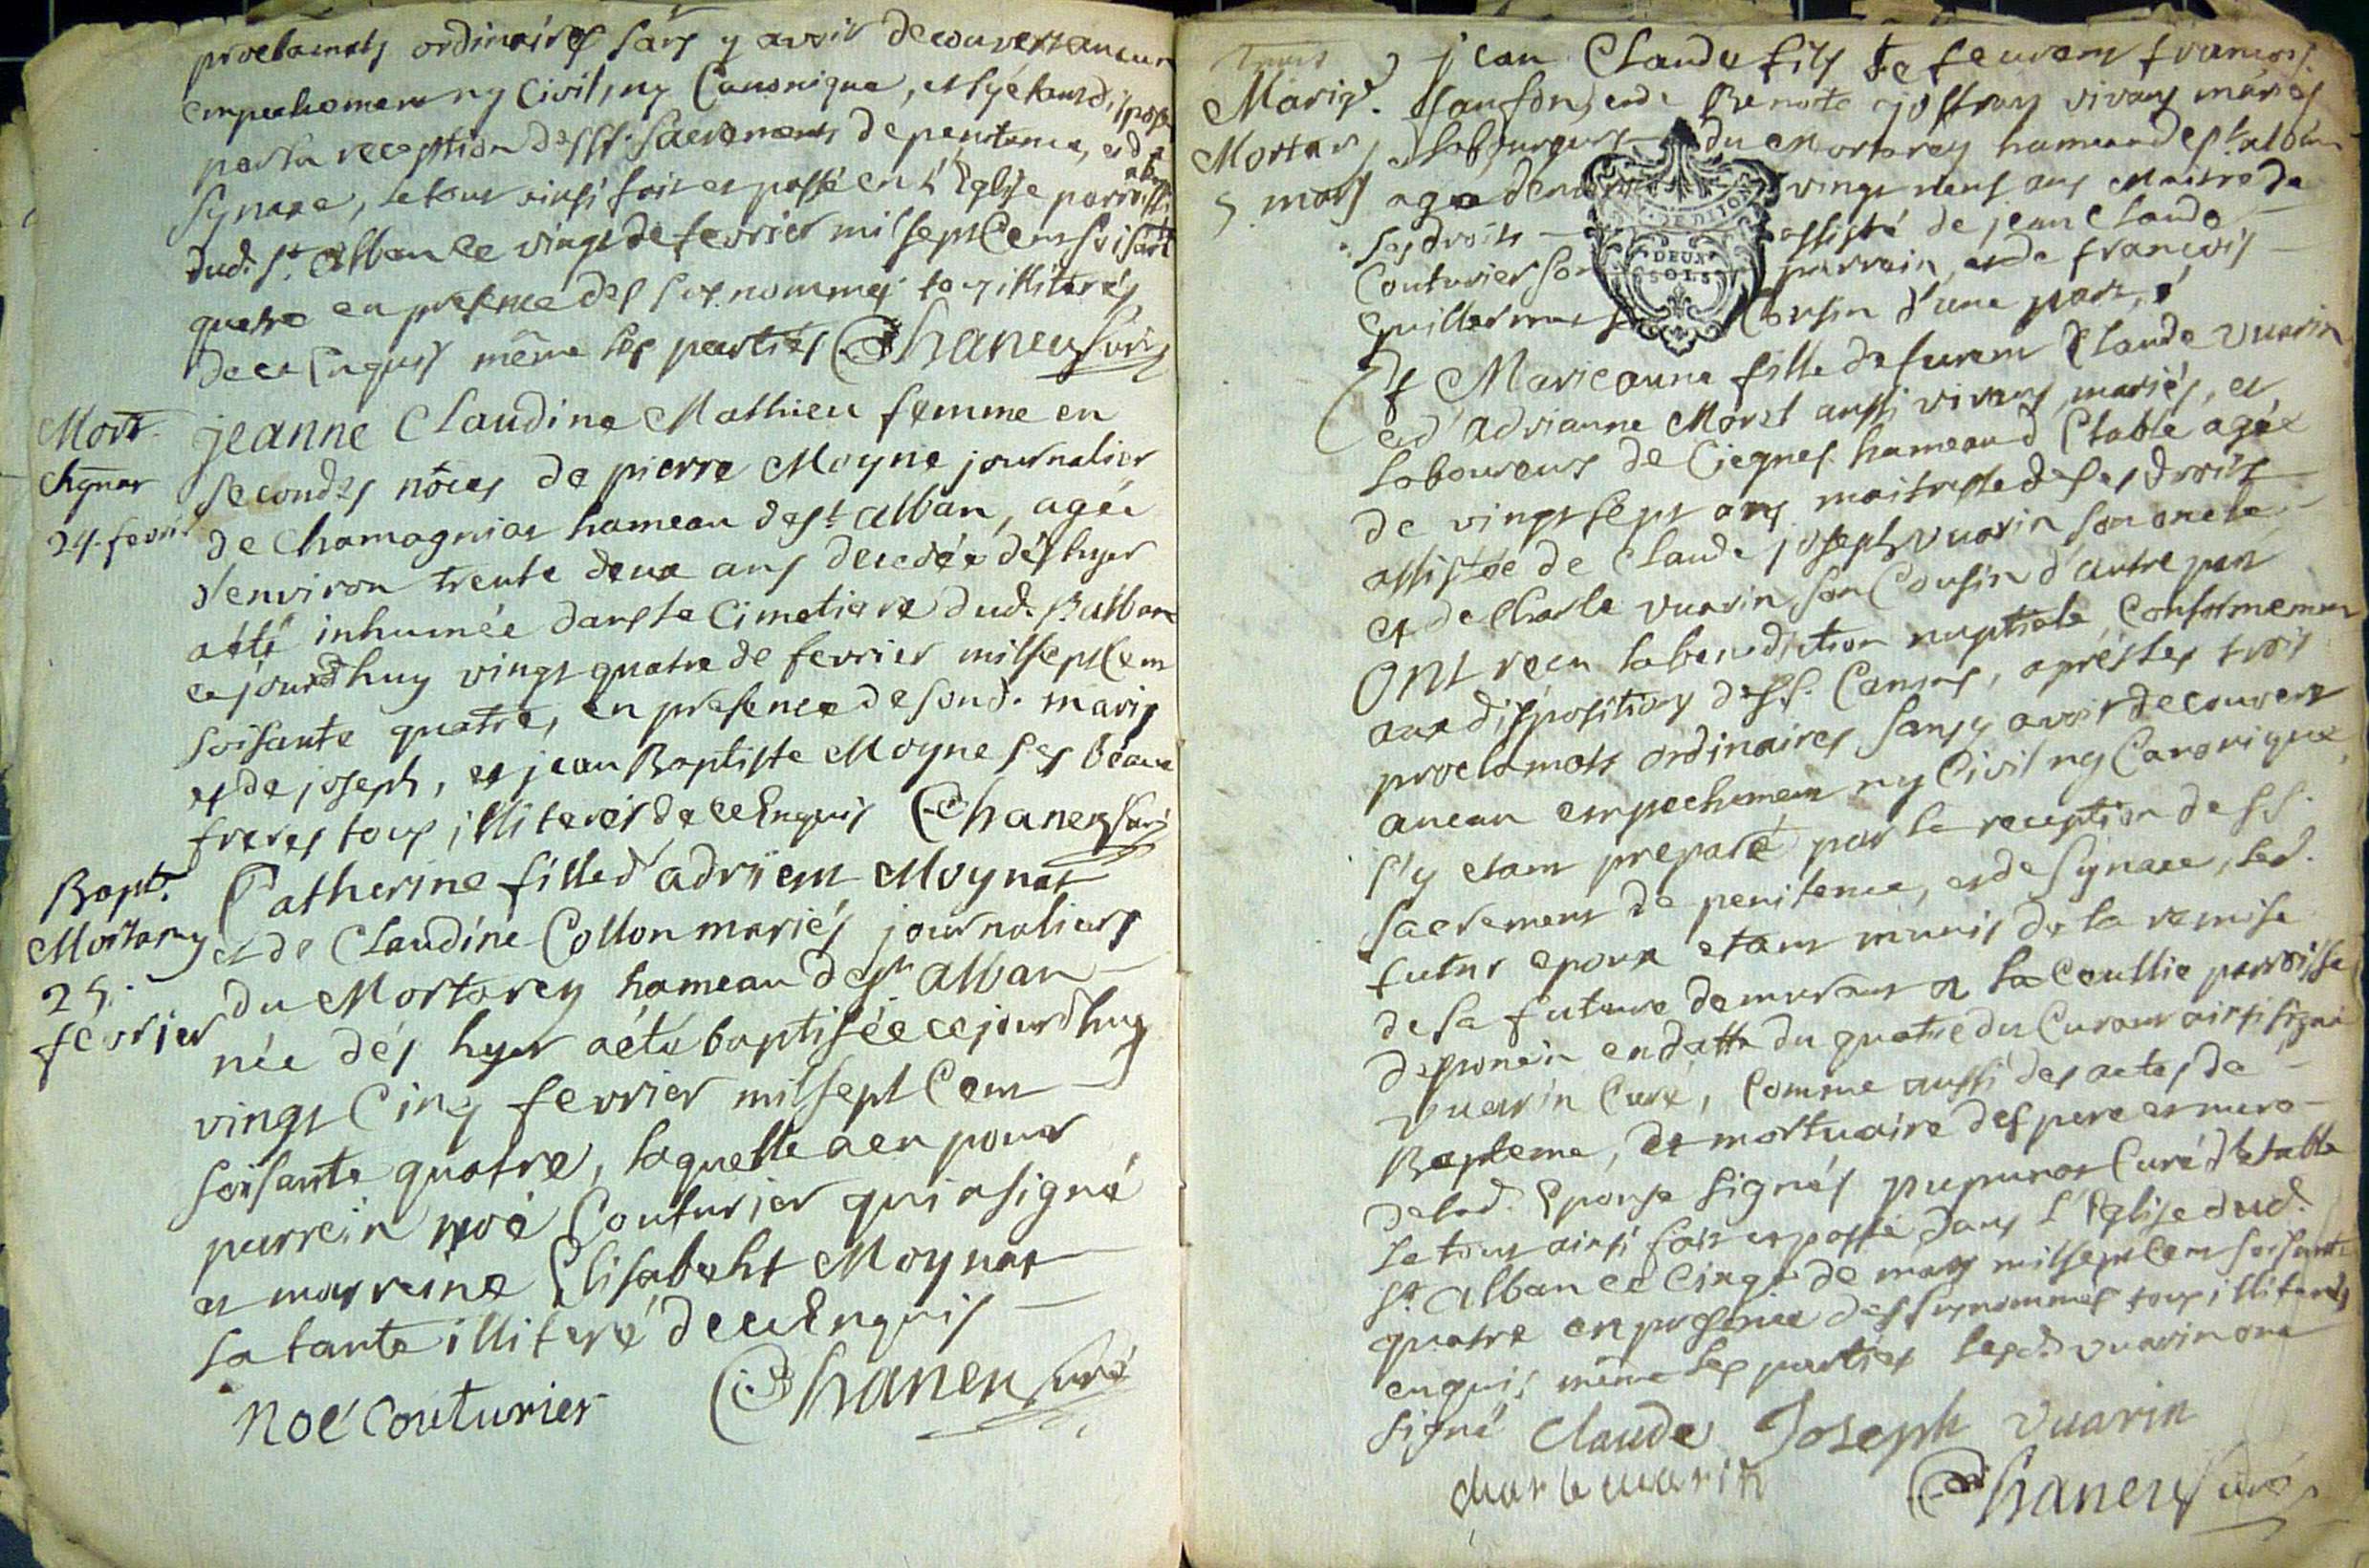 proclamats ordinaires sans y avoir decouvert aucun
empechement ny Civil, ny Canonique, et s'y étant disposé
par la reception des SS. Sacrements de penitence, et de
Synaxe, le tout ainsi fait et passé en l'Eglise parroissi
dud. St. Alban ce vingt de fevrier mil sept Cent soisante
quatre en presence des susnommés tous illiterés
de ce Enquis même les parties Chaneu Curé
Mort
Chgnar
24. fevri
jeanne Claudine Mathieu femme en
secondes nôces de pierre Moyne journalier
de Chamagnias hameau de st. alban, agée
d'environ trente deux ans decedée dés hyer
a été inhumée dans le Cimetiere dud. St. alban
ce jourd'huy vingt quatre de fevrier mil sept Cent
soisante quatre, en presence de sond. maris
et de joseph, et jean Baptiste Moyne ses beaux
freres tous illiterés de ce Enquis Chaneu Curé
Bapt.
Mortarey
25.
fevrier
Catherine fille d'adrien Moynat
et de Claudine Collon mariés journaliers
du Mortarey hameau de st. alban
née dés hyer a été baptisée ce jourd'huy
vingt Cinq fevrier mil sept Cent
soisante quatre, laquelle a eu pour
parrein noé Couturier qui a signé
et marreine Elisabeht Moynat
sa tante illiteré de ce Enquis
Noé Couturier Chaneu Curé
Mariag.
Mortar
5. mars
jean Claude fils de feurent francois
Sanson, et de Benoite jostray vivans mariés
Laboureurs du Mortarey hameau de st. alban
agé vingt neuf ans Maitre de
ses droits assisté de jean Claude
Couturier son parrain, et de francois
Guillermet Cousin d'une part,
Et Marieanne fille de furent Claude vuarin
et d'adrianne Morel aussi vivans mariés, et
laboureurs de Ciegnes hameau d'Etable agée
de vingt sept ans maitresse de ses droits
assistée de Claude joseph vuarin son oncle
et de Charle vuarin son Cousin d'autre part
Ont recu la benediction nuptiale Conformement
aux dispositions des SS. Canons, aprés les trois
proclamats ordinaires sans y avoir decouvert
aucun empechement ny Civil ny Canonique
s'y etant preparé par la reception des SS.
Sacrements de penitence, et de Synaxe, led.
futur epoux etant munis de la remise
de sa future demeurant a la Ceullie parroisse
de poncin en datte du quatre du Courant ainsi signé
vuarin Curé, Comme aussi des actes de
Bapteme, et mortuaire des pere et mere
de lad. Epouse signés pupunat Curé d'Etable
Le tout ainsi fait et passé dans l'Eglise dud.
St. Alban ce Cinq de mars mil sept Cent soisante
quatre en presence des susnommés tous illiterés
enquis même les parties lesd. vuarin ont
signé Claude Joseph Vuarin
Charle vuarin Chaneu Curé
DE DIJON
DEUX
SOLS